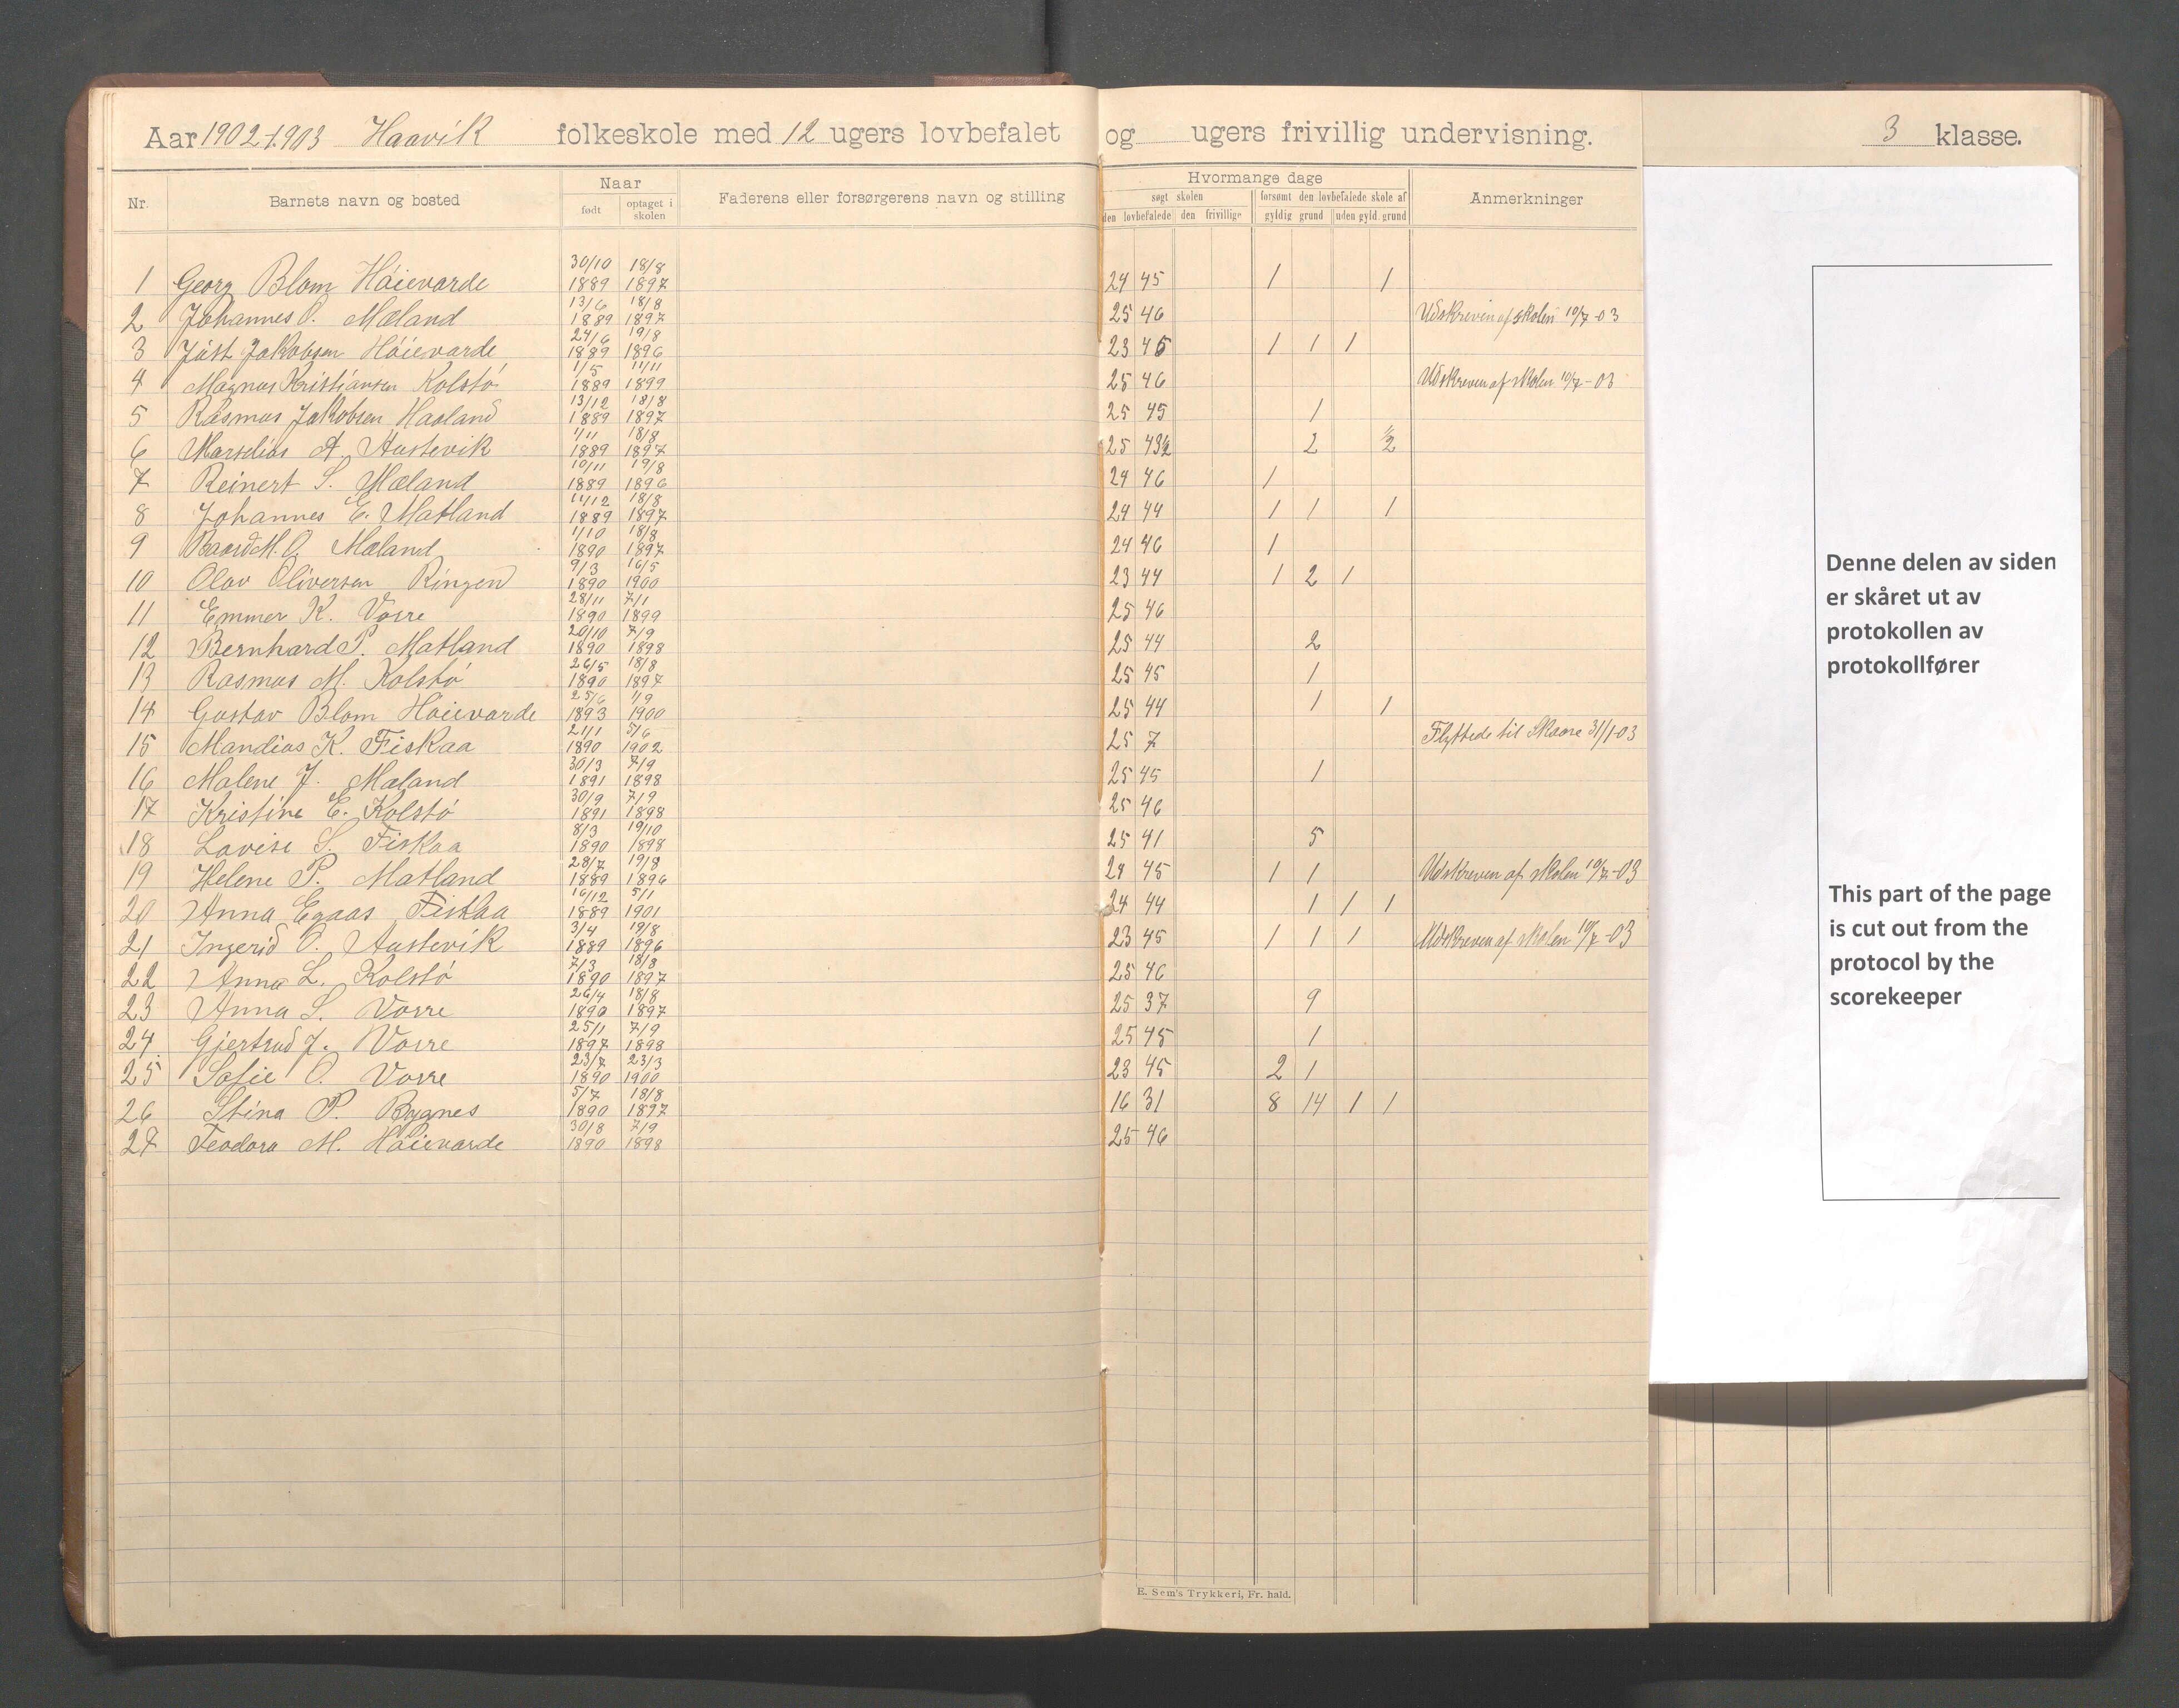 Aar 1902-1903 Haavik folkeskole med 12 ugers lovbefalet og ugers frivillig undervisning. 3 klasse.
Nr. Barnets navn og bosted Naar født optaget i skolen Faderens eller forsørgerens navn og stilling Hvormange dage søgt skolen den lovbefalede den frivillige forsømt den lovbefalede skole af gyldig grund uden gyld. grund Anmerkninger
1 Georg Blom Høievarde 30/10 1889 18/8 1897 24 45 1 1
2 Johannes O. Mæland 13/6 1889 18/8 1897 25 46 Udskreven af skolen 10/7-03
3 Jūst Jakobsen Høievarde 24/6 1889 19/8 1896 23 45 1 1 1
4 Magnus Kristiansen Kolstø 1/5 1889 11/11 1899 25 46 Udskreven af skolen 10/7-03
5 Rasmus Jakobsen Haaland 13/12 1889 18/8 1897 25 45 1
6 Marselius A. Austevik 1/11 1889 18/8 1897 25 43½ 2 ½
7 Reinert S. Mæland 10/11 1889 19/8 1896 24 46 1
8 Johannes E. Matland 14/12 1889 18/8 1897 24 44 1 1 1
9 Baard M. O. Mæland 1/10 1890 18/8 1897 24 46 1
10 Olav Oliversen Ringen 9/3 1890 16/5 1900 23 44 1 2 1
11 Emmer K. Vorre 28/11 1890 7/1 1899 25 46
12 Bernhard P. Matland 20/10 1890 7/9 1898 25 44 2
13 Rasmus M. Kolstø 26/5 1890 18/8 1897 25 45 1
14 Gustav Blom Høievarde 25/6 1893 1/9 1900 25 44 1 1
15 Mandius K. Fiskaa 21/1 1890 5/6 1902 25 7 Flyttede til Skaare 31/1-03
16 Malene J. Mæland 30/3 1891 7/9 1898 25 45 1
17 Kristine E. Kolstø 30/9 1891 7/9 1898 25 46
18 Lovise S. Fiskaa 8/3 1890 19/10 1898 25 41 5
19 Helene P. Matland 28/7 1889 19/8 1896 24 45 1 1 Udskreven af skolen 10/7-03
20 Anna Egaas Fiskaa 16/12 1889 5/1 1901 24 44 1 1 1
21 Ingerid O. Austevik 3/4 1889 19/8 1896 23 45 1 1 1 Udskreven af skolen 10/7-03
22 Anna L. Kolstø 7/3 1890 18/8 1897 25 46
23 Anna S. Vorre 26/4 1890 18/8 1897 25 37 9
24 Gjertrud J. Vorre 25/1 1897 7/9 1898 25 45 1
25 Sofie O. Vorre 23/7 1890 23/3 1900 23 45 2 1
26 Stina P. Bygnes 5/7 1890 18/8 1897 16 31 8 14 1 1
27 Teodora M. Høievarde 30/8 1890 7/9 1898 25 46
E. Sem's Trykkeri, Fr. hald.
Denne delen av siden
er skåret ut av
protokollen av
protokollfører
This part of the page
is cut out from the
protocol by the
scorekeeper